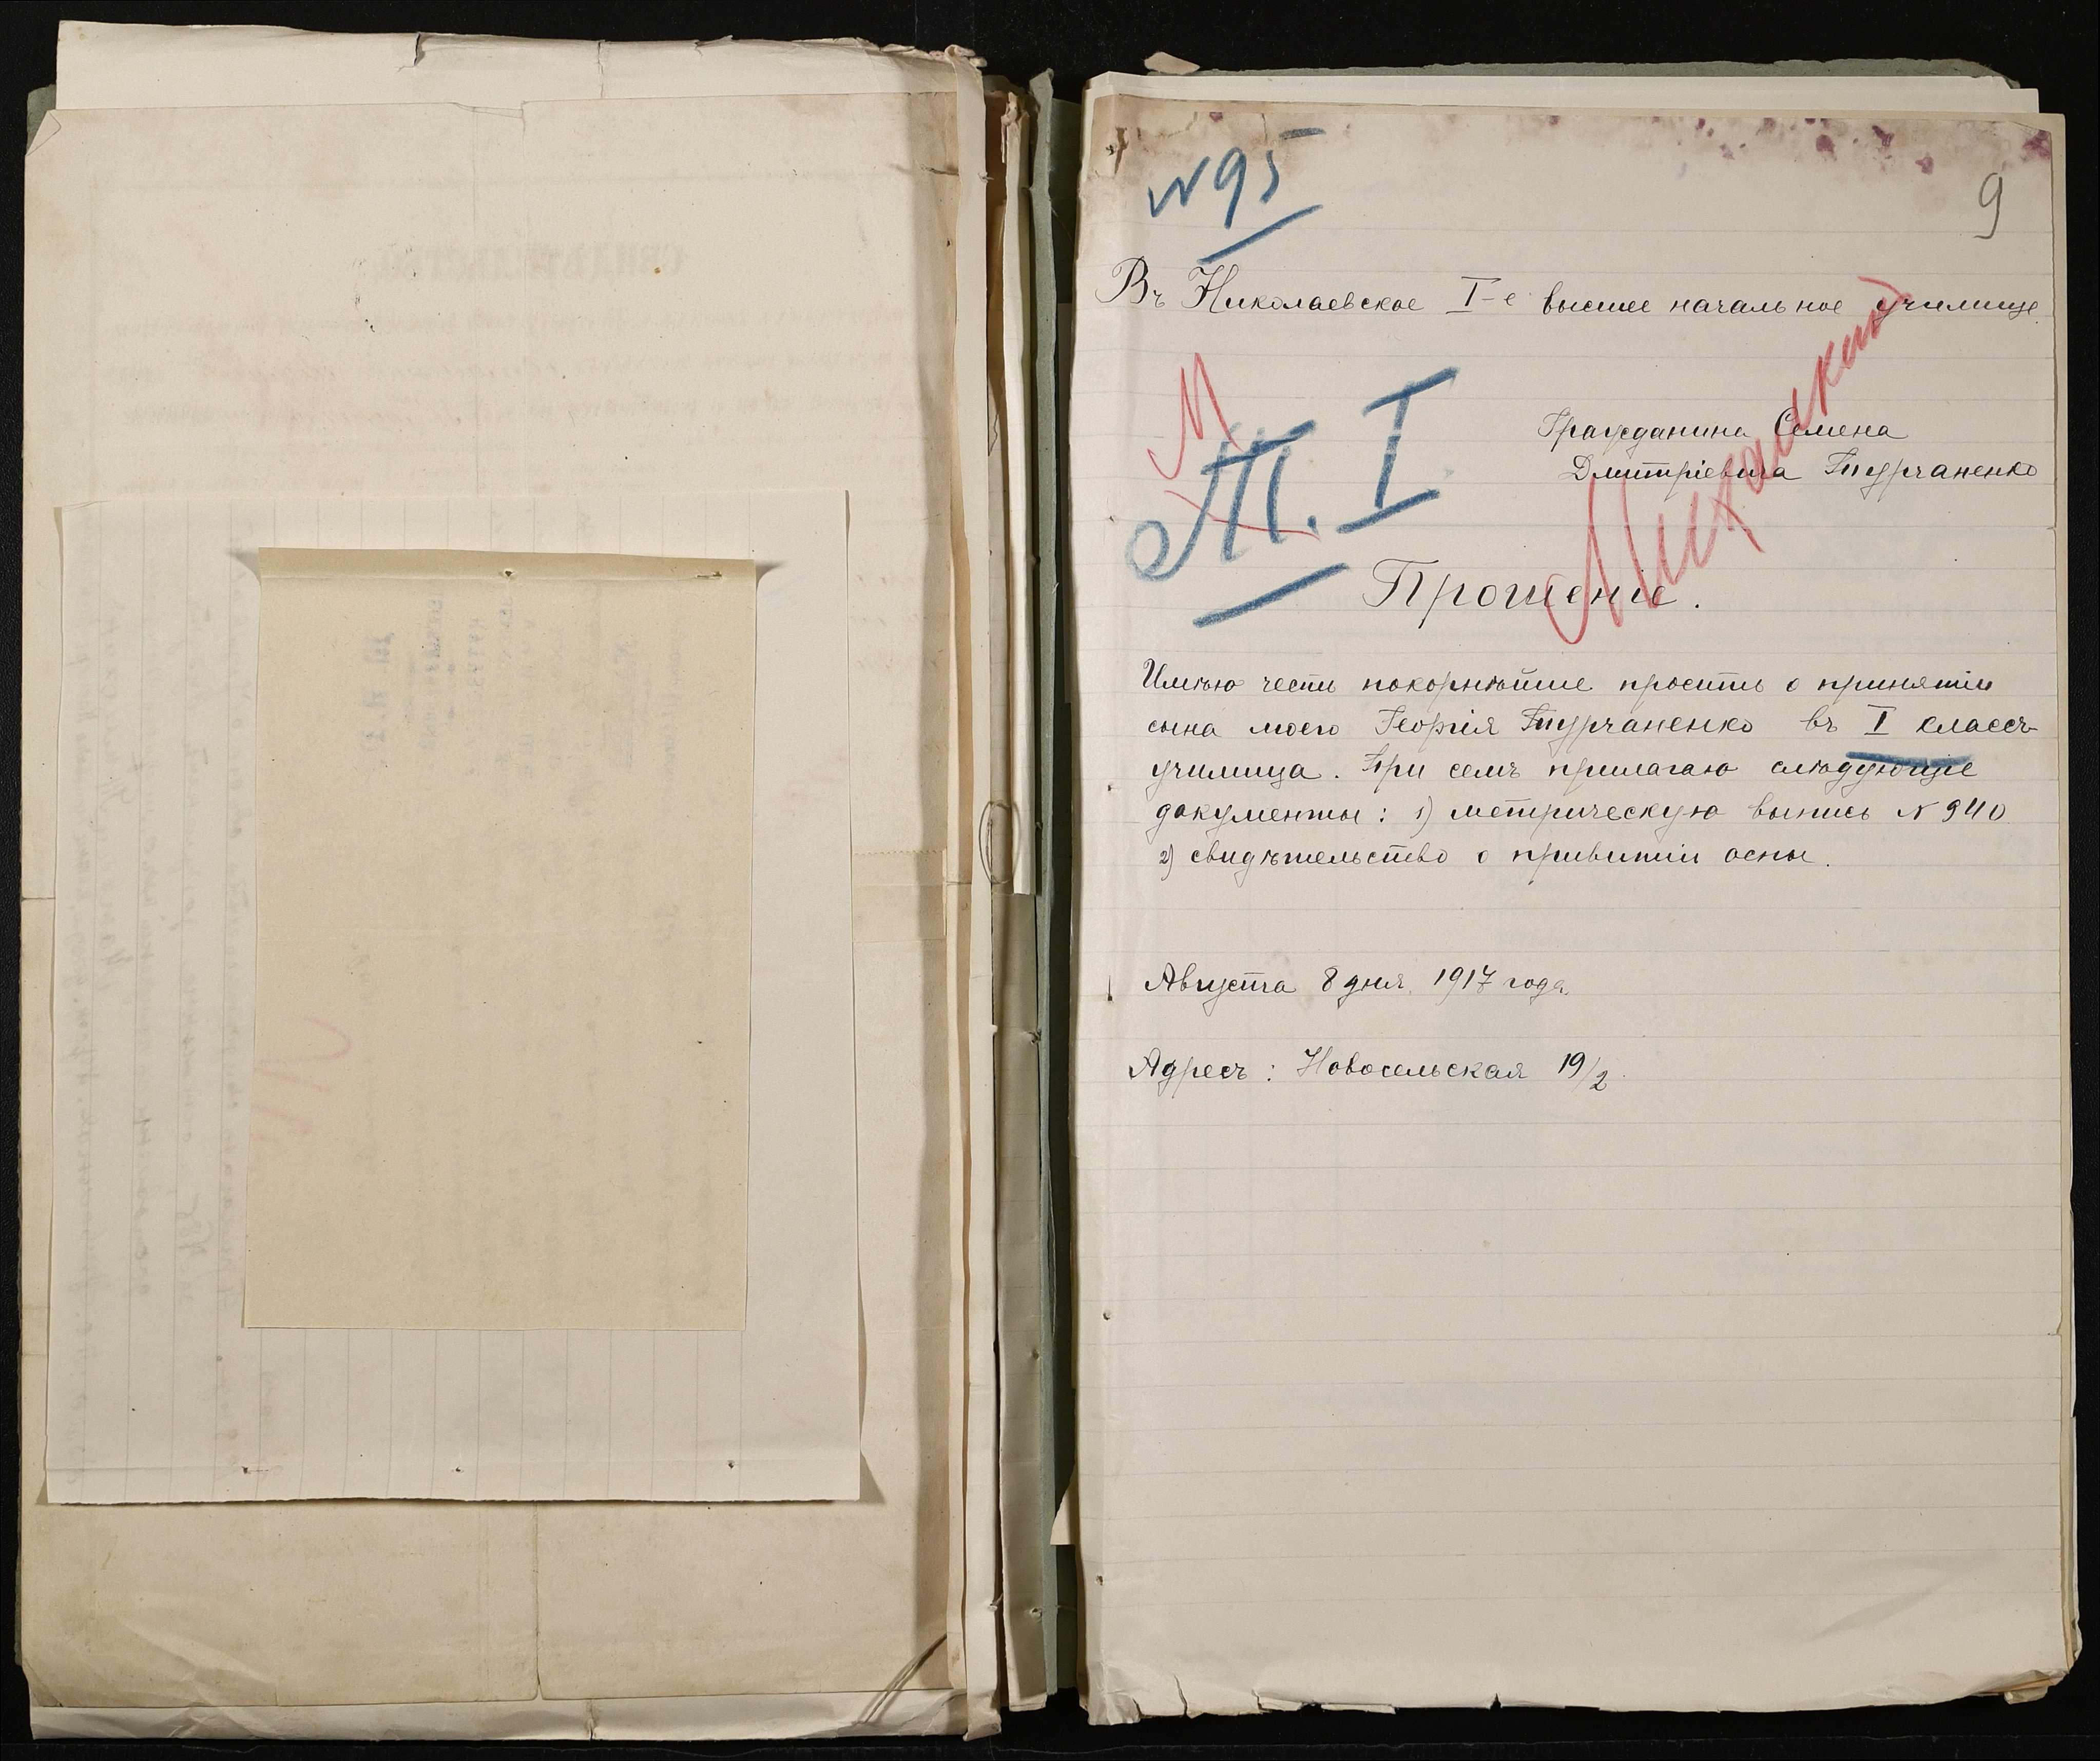 N 95
9
Въ Николаевское I-е высшее начальное училище
Гражданина Семена
Дмитріевича Турчаненко
М
Т. I
Михальскій
Прошеніе.
Имѣю честь покорнѣйше просить о принятіи
сына моего Георгія Турчаненко въ I классъ
училища. При семъ прилагаю слѣдующіе
документы: 1) метрическую выпись N 940
2) свидѣтельство о привитіи оспы.
Августа 8 дня 1917 года.
Адресъ: Новосельская 19/2.